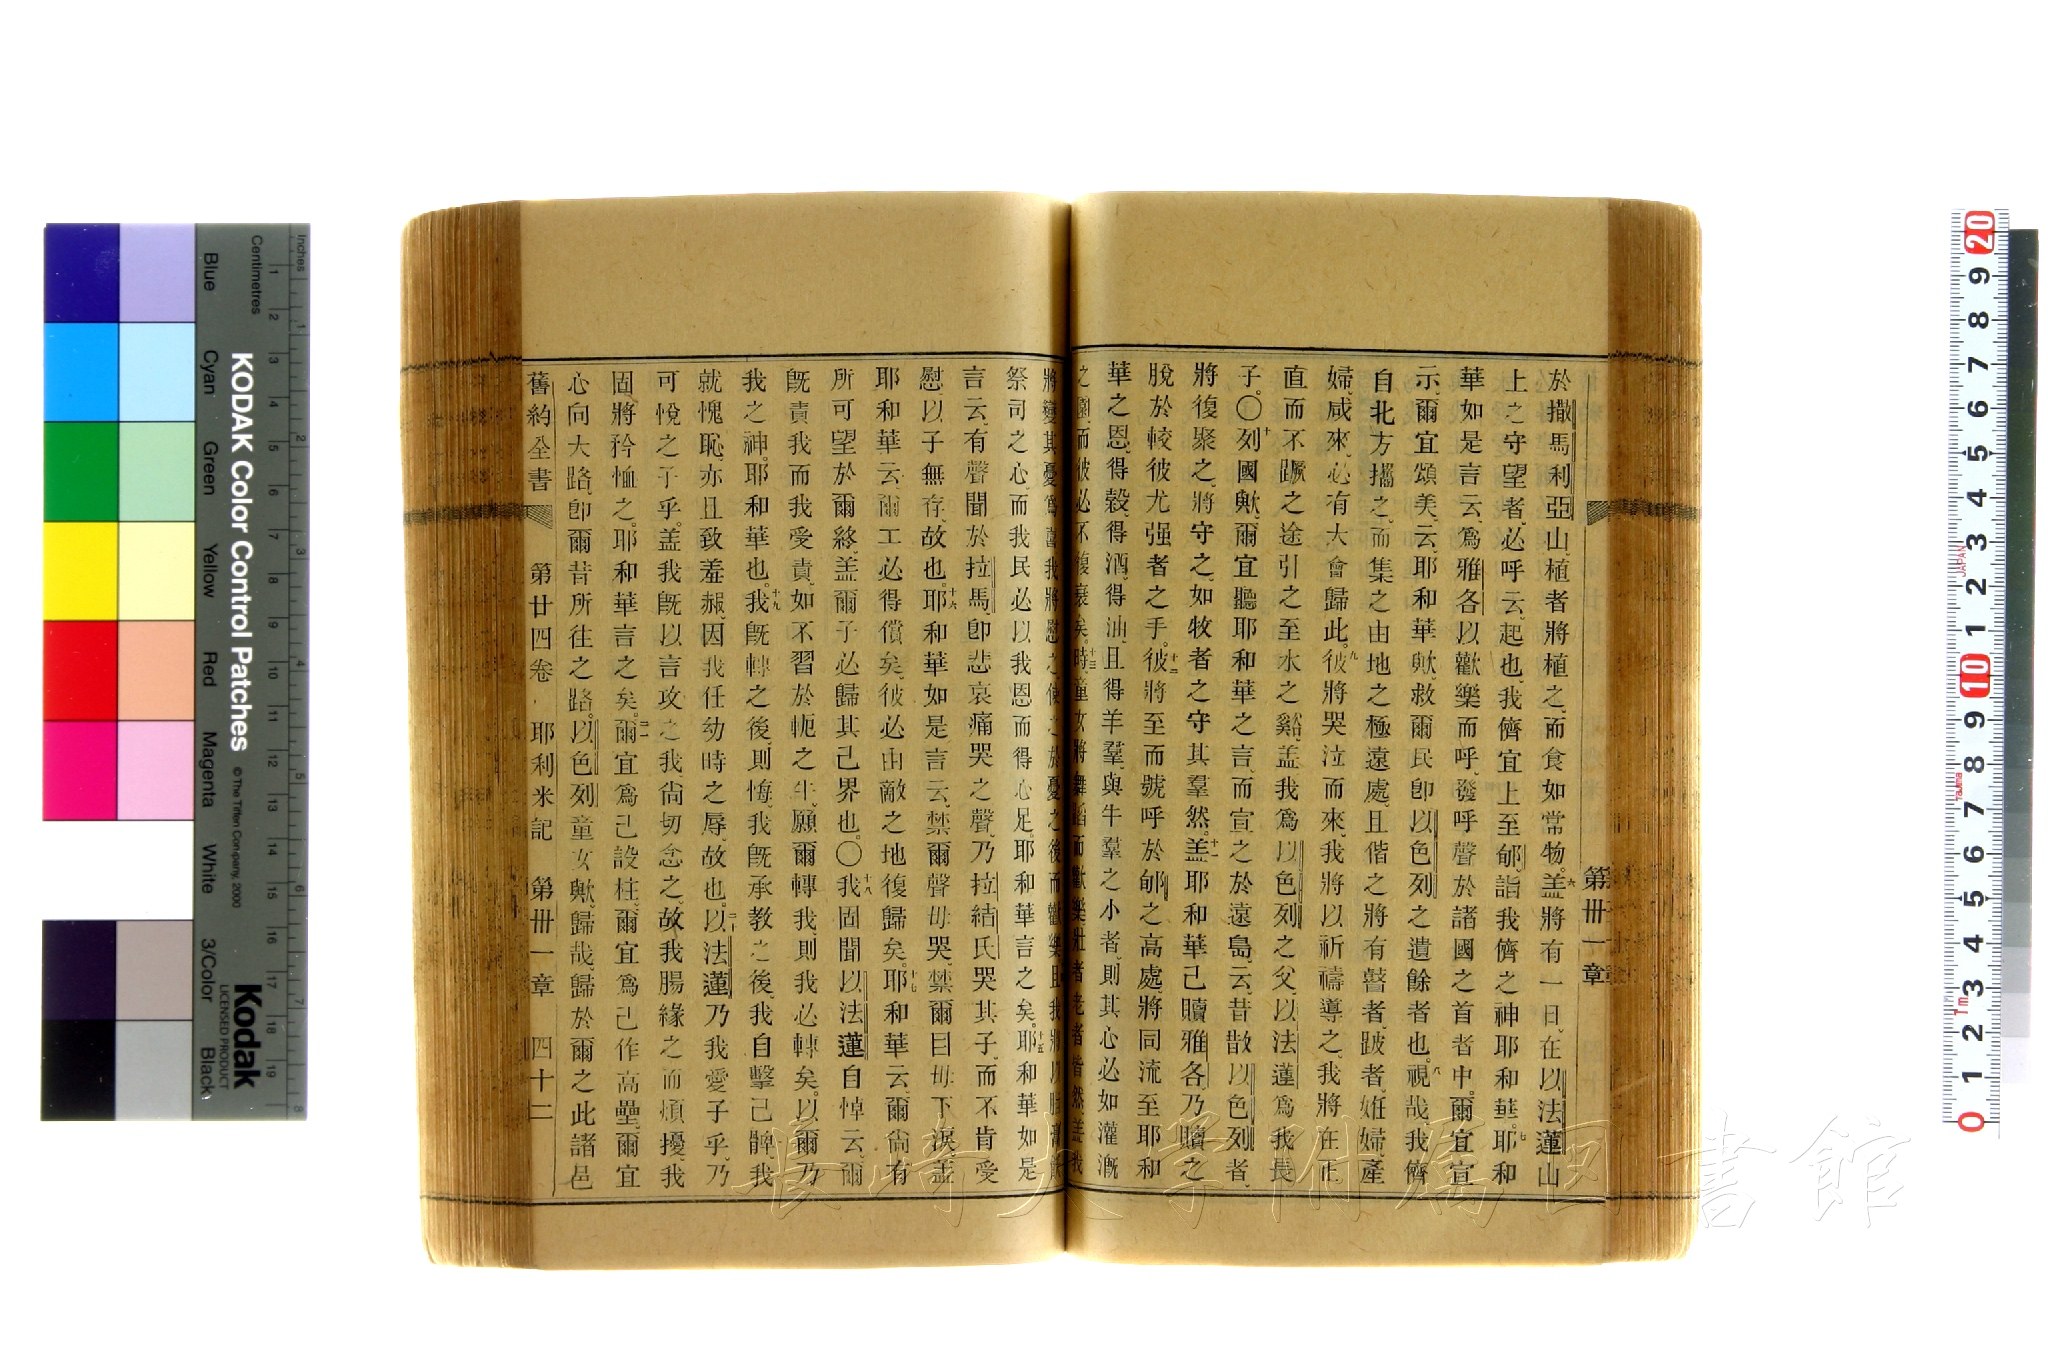 第卅一章
於撒馬利亞山、植者將植之、而食如常物。六蓋將有一日、在以法蓮山
上之守望者、必呼云、起也、我儕宜上至郇、詣我儕之神耶和華。七耶和
華如是言云、爲雅各以歡樂而呼、發呼聲於諸國之首者中。爾宜宣
示、爾宜頌美、云、耶和華歟、救爾民、卽以色列之遺餘者也。八視哉、我儕
自北方攜之、而集之由地之極遠處、且偕之將有瞽者、跛者、姙婦、產
婦、咸來、必有大會歸此。九彼將哭泣而來、我將以祈禱導之、我將在正
直而不蹶之途、引之至水之谿、蓋我爲以色列之父、以法蓮爲我長
子。〇十列國歟、爾宜聽耶和華之言、而宣之於遠島、云、昔散以色列者、
將復聚之、將守之、如牧者之守其羣然。十一蓋耶和華己贖雅各、乃贖之
脫於較彼尤强者之手。十二彼將至而號呼於郇之高處、將同流至耶和
華之恩、得穀、得酒、得油、且得羊羣、與牛羣之小者、則其心必如灌漑
之園、而彼必不復哀矣。十三時童女將舞蹈而歡樂、壯者老者皆然、蓋我
將變其憂爲喜、我將慰之、使之於憂之後而歡樂、且我將以脂膏飫
祭司之心、而我民必以我恩而得心足、耶和華言之矣。十五耶和華如是
言云、有聲聞於拉馬、卽悲哀痛哭之聲、乃拉結氏哭其子、而不肯受
慰、以子無存、故也。十六耶和華如是言云、禁爾聲毋哭、禁爾目毋下淚、蓋
耶和華云、爾工必得償矣、彼必由敵之地復歸矣。十七耶和華云、爾尙有
所可望於爾終、蓋爾子必歸其己界也。〇十八我固聞以法蓮自悼云、爾
旣責我、而我受責、如不習於軛之牛、願爾轉我、則我必轉矣、以爾乃
我之神、耶和華也。十九我旣轉之後、則悔、我旣承教之後、我自擊己髀、我
就愧恥、亦且致羞赧、因我任幼時之辱、故也。二十以法蓮乃我愛子乎、乃
可悅之子乎。蓋我旣以言攻之、我尙切念之、故我腸緣之而煩擾、我
固將矜恤之、耶和華言之矣。二一爾宜爲己設柱、爾宜爲己作高壘、爾宜
心向大路、卽爾昔所往之路。以色列童女歟、歸哉、歸於爾之此諸邑
舊約全書 第廿四卷 耶利米記 第卅一章 四十二